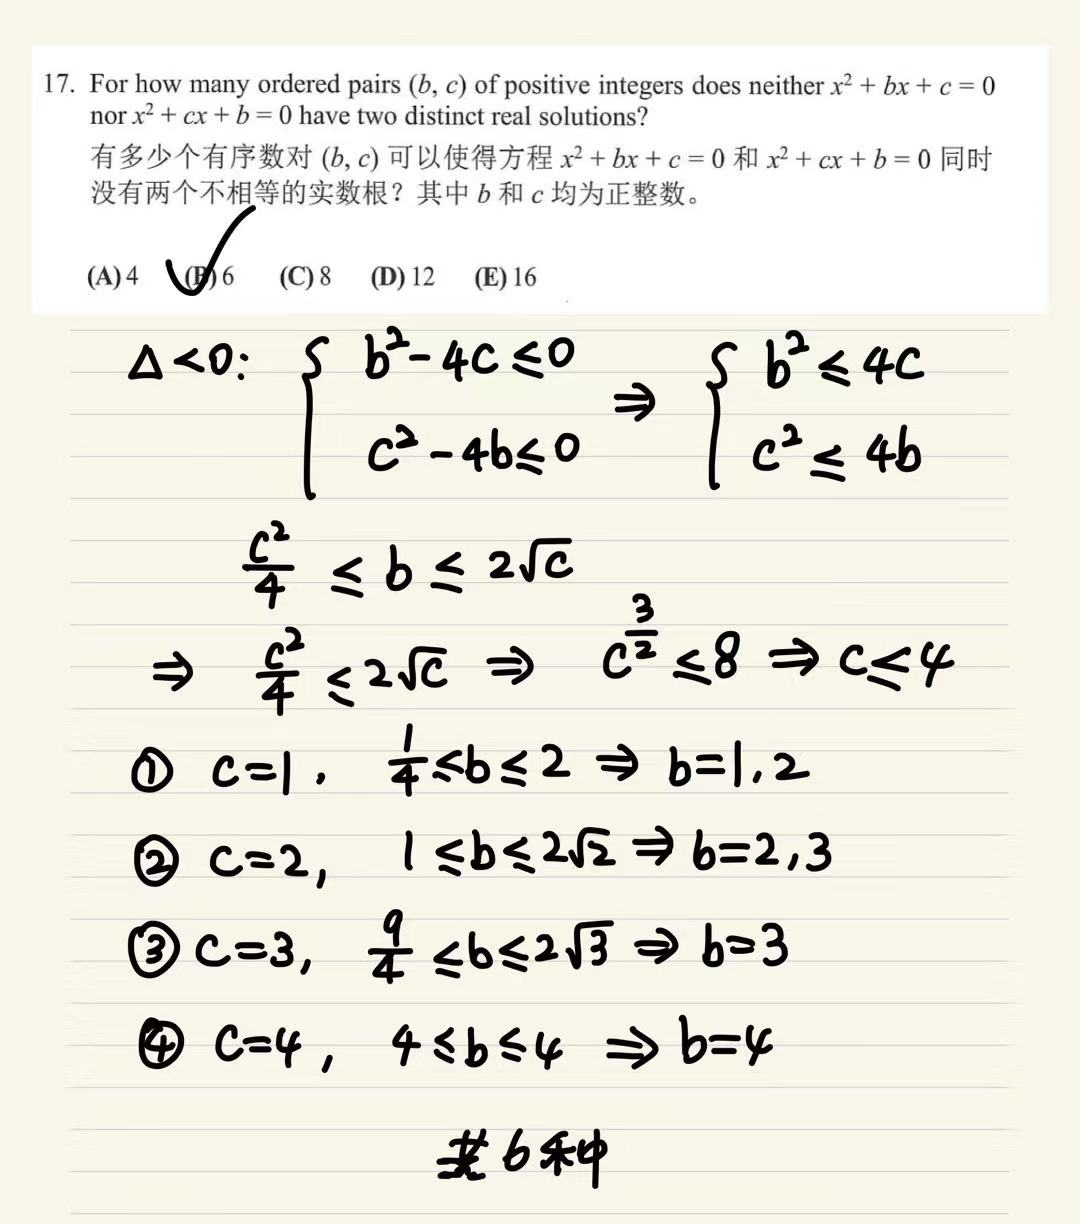 17. For how many ordered pairs (b, c) of positive integers does neither x² + bx + c = 0
nor x² + cx + b = 0 have two distinct real solutions?
有多少个有序数对 (b, c) 可以使得方程 x² + bx + c = 0 和 x² + cx + b = 0 同时
没有两个不相等的实数根？其中 b 和 c 均为正整数。
(A) 4 (B) 6 (C) 8 (D) 12 (E) 16
Δ<0: { b²-4c≤0 ⇒ { b²≤4c
c²-4b≤0 c²≤4b
c²/4 ≤ b ≤ 2√c
⇒ c²/4 ≤ 2√c ⇒ c^(3/2) ≤ 8 ⇒ c≤4
① c=1, 1/4≤b≤2 ⇒ b=1,2
② c=2, 1≤b≤2√2 ⇒ b=2,3
③ c=3, 9/4≤b≤2√3 ⇒ b=3
④ c=4, 4≤b≤4 ⇒ b=4
共6种